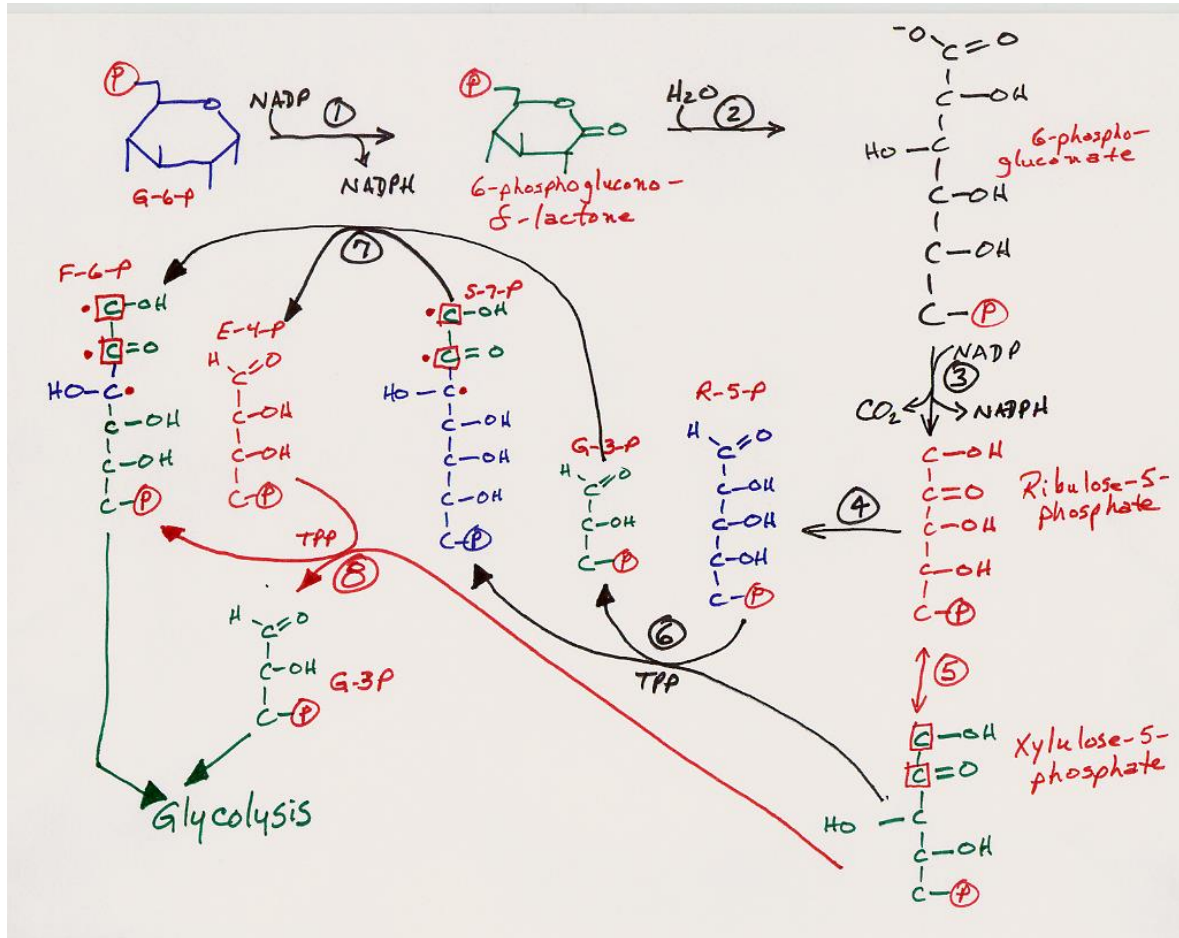 P
NADP
1
NADPH
G-6-P
O
P
O
=O
6-phosphoglucono-
δ-lactone
H2O
2
-O
C=O
C-OH
HO-C
C-OH
C-OH
C-P
6-phospho-
gluconate
NADP
3
CO2
NADPH
C-OH
C=O
C-OH
C-OH
C-P
Ribulose-5-
phosphate
4
R-5-P
H
C=O
C-OH
C-OH
C-OH
C-P
5
C-OH
C=O
HO-C
C-OH
C-P
Xylulose-5-
phosphate
6
TPP
G-3-P
H
C=O
C-OH
C-P
S-7-P
C-OH
C=O
HO-C
C-OH
C-OH
C-OH
C-P
7
E-4-P
H
C=O
C-OH
C-OH
C-P
F-6-P
C-OH
C=O
HO-C
C-OH
C-OH
C-P
TPP
8
H
C=O
C-OH
C-P
G-3P
Glycolysis